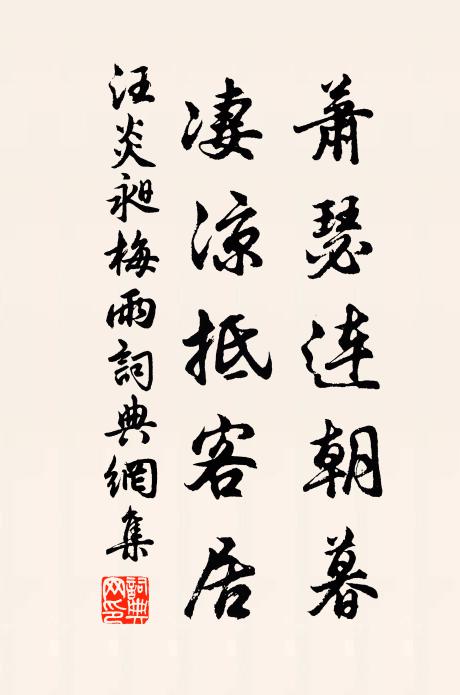 蕭瑟連朝暮
凄涼抵客居
汪炎昶梅雨詞典網集
詞典
网印